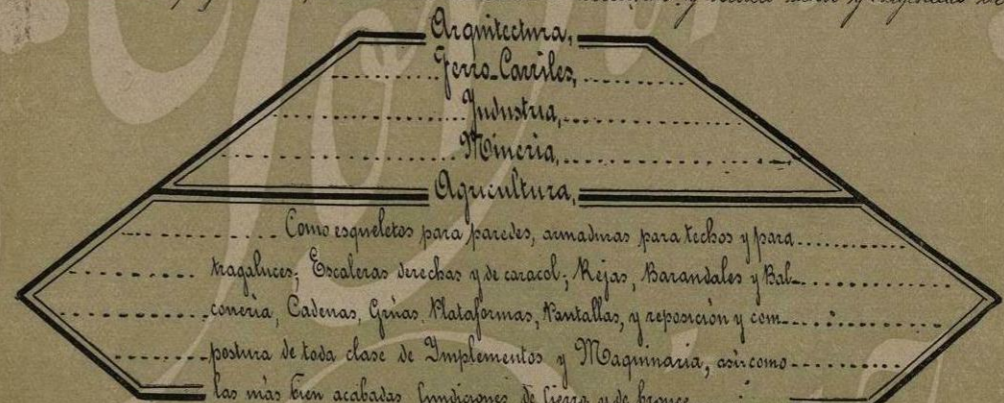 Arquitectura,
Ferro-Carriles,
Industria,
Mineria,
Agricultura,
Como esqueletos para paredes, armaduras para techos y para
tragaluces; Escaleras derechas y de caracol; Rejas, Barandales y Bal-
conería, Cadenas, Grúas, Plataformas, Pantallas, y reposición y com-
postura de toda clase de Implementos y Maquinaria, así como
las más bien acabadas fundiciones de fierro y de bronce